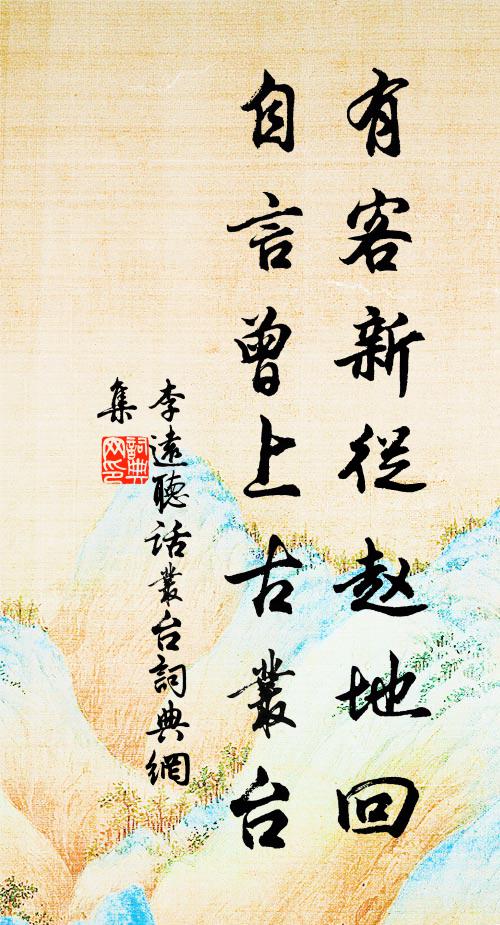 有客新從赵地回
自言曾上古叢台
李遠聽話叢台詞典網
集
詞典
网印